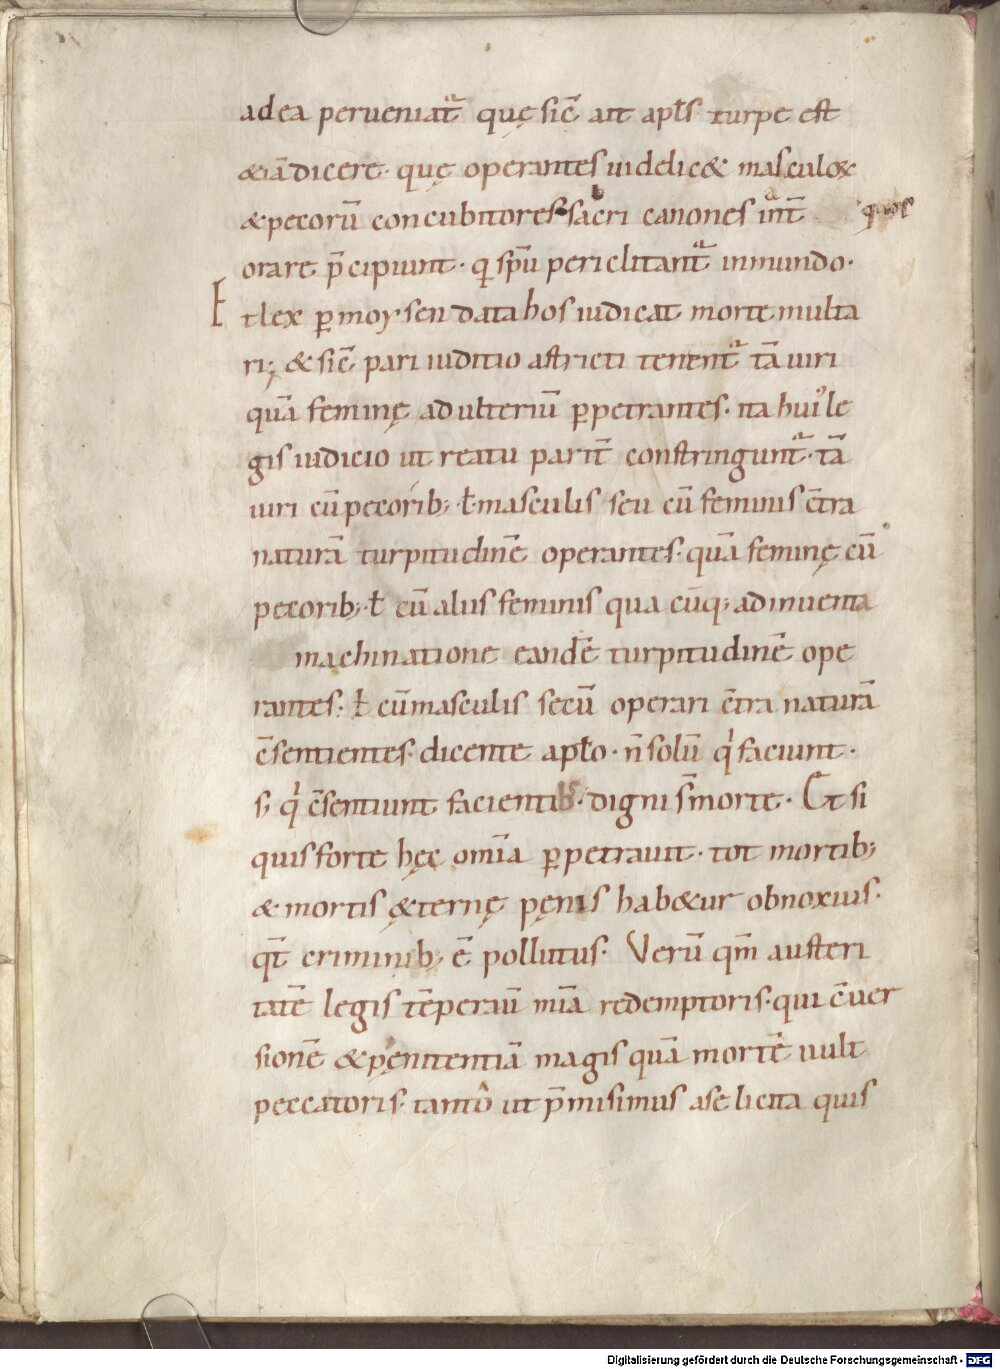 ad ea perueniat᷑ quę sic̄ ait apl̄s turpe est
&iā dicere· quę operantes uidelic& masculoꝝ
&pecorū concubitores· sacri canones int̄ quos
orare p̄cipiunt· q spū periclitant᷑ inmundo·
Et lex ꝑ moysen data hos iudicat morte multa
ri; & sic̄ pari iuditio astricti tenent᷑ tā uiri
quā feminę adulteriū ꝑpetrantes· ita hui᾿ le
gis iudicio ut reatu parit̄ constringunt᷑· tā
uiri cū pecorib; ł masculis seu cū feminis c̄tra
naturā turpitudinē operantes· quā feminę cū
pecorib; ł cū aliis feminis qua cūq; adinuenta
machinatione eandē turpitudinē ope
rantes· ł cū masculis secū operari c̄tra naturā
c̄sentientes· dicente apl̄o· n̄ solū q̍ faciunt·
s; q̍ c̄sentiunt facientib;· digni s̄ morte· Et si
quis forte hęc om̄ia ꝑpetrauit· tot mortib;
& mortis ęternę pęnis hab&ur obnoxius·
qt̄ criminib; ē pollutus· Verū qm̄ austeri
tatē legis tēperauī mīa redemptoris· qui c̄uer
sionē & pęnitentiā magis quā mortē uult
peccatoris· tantō ut p̄misimus ase licita quis
Digitalisierung gefördert durch die Deutsche Forschungsgemeinschaft - DFG